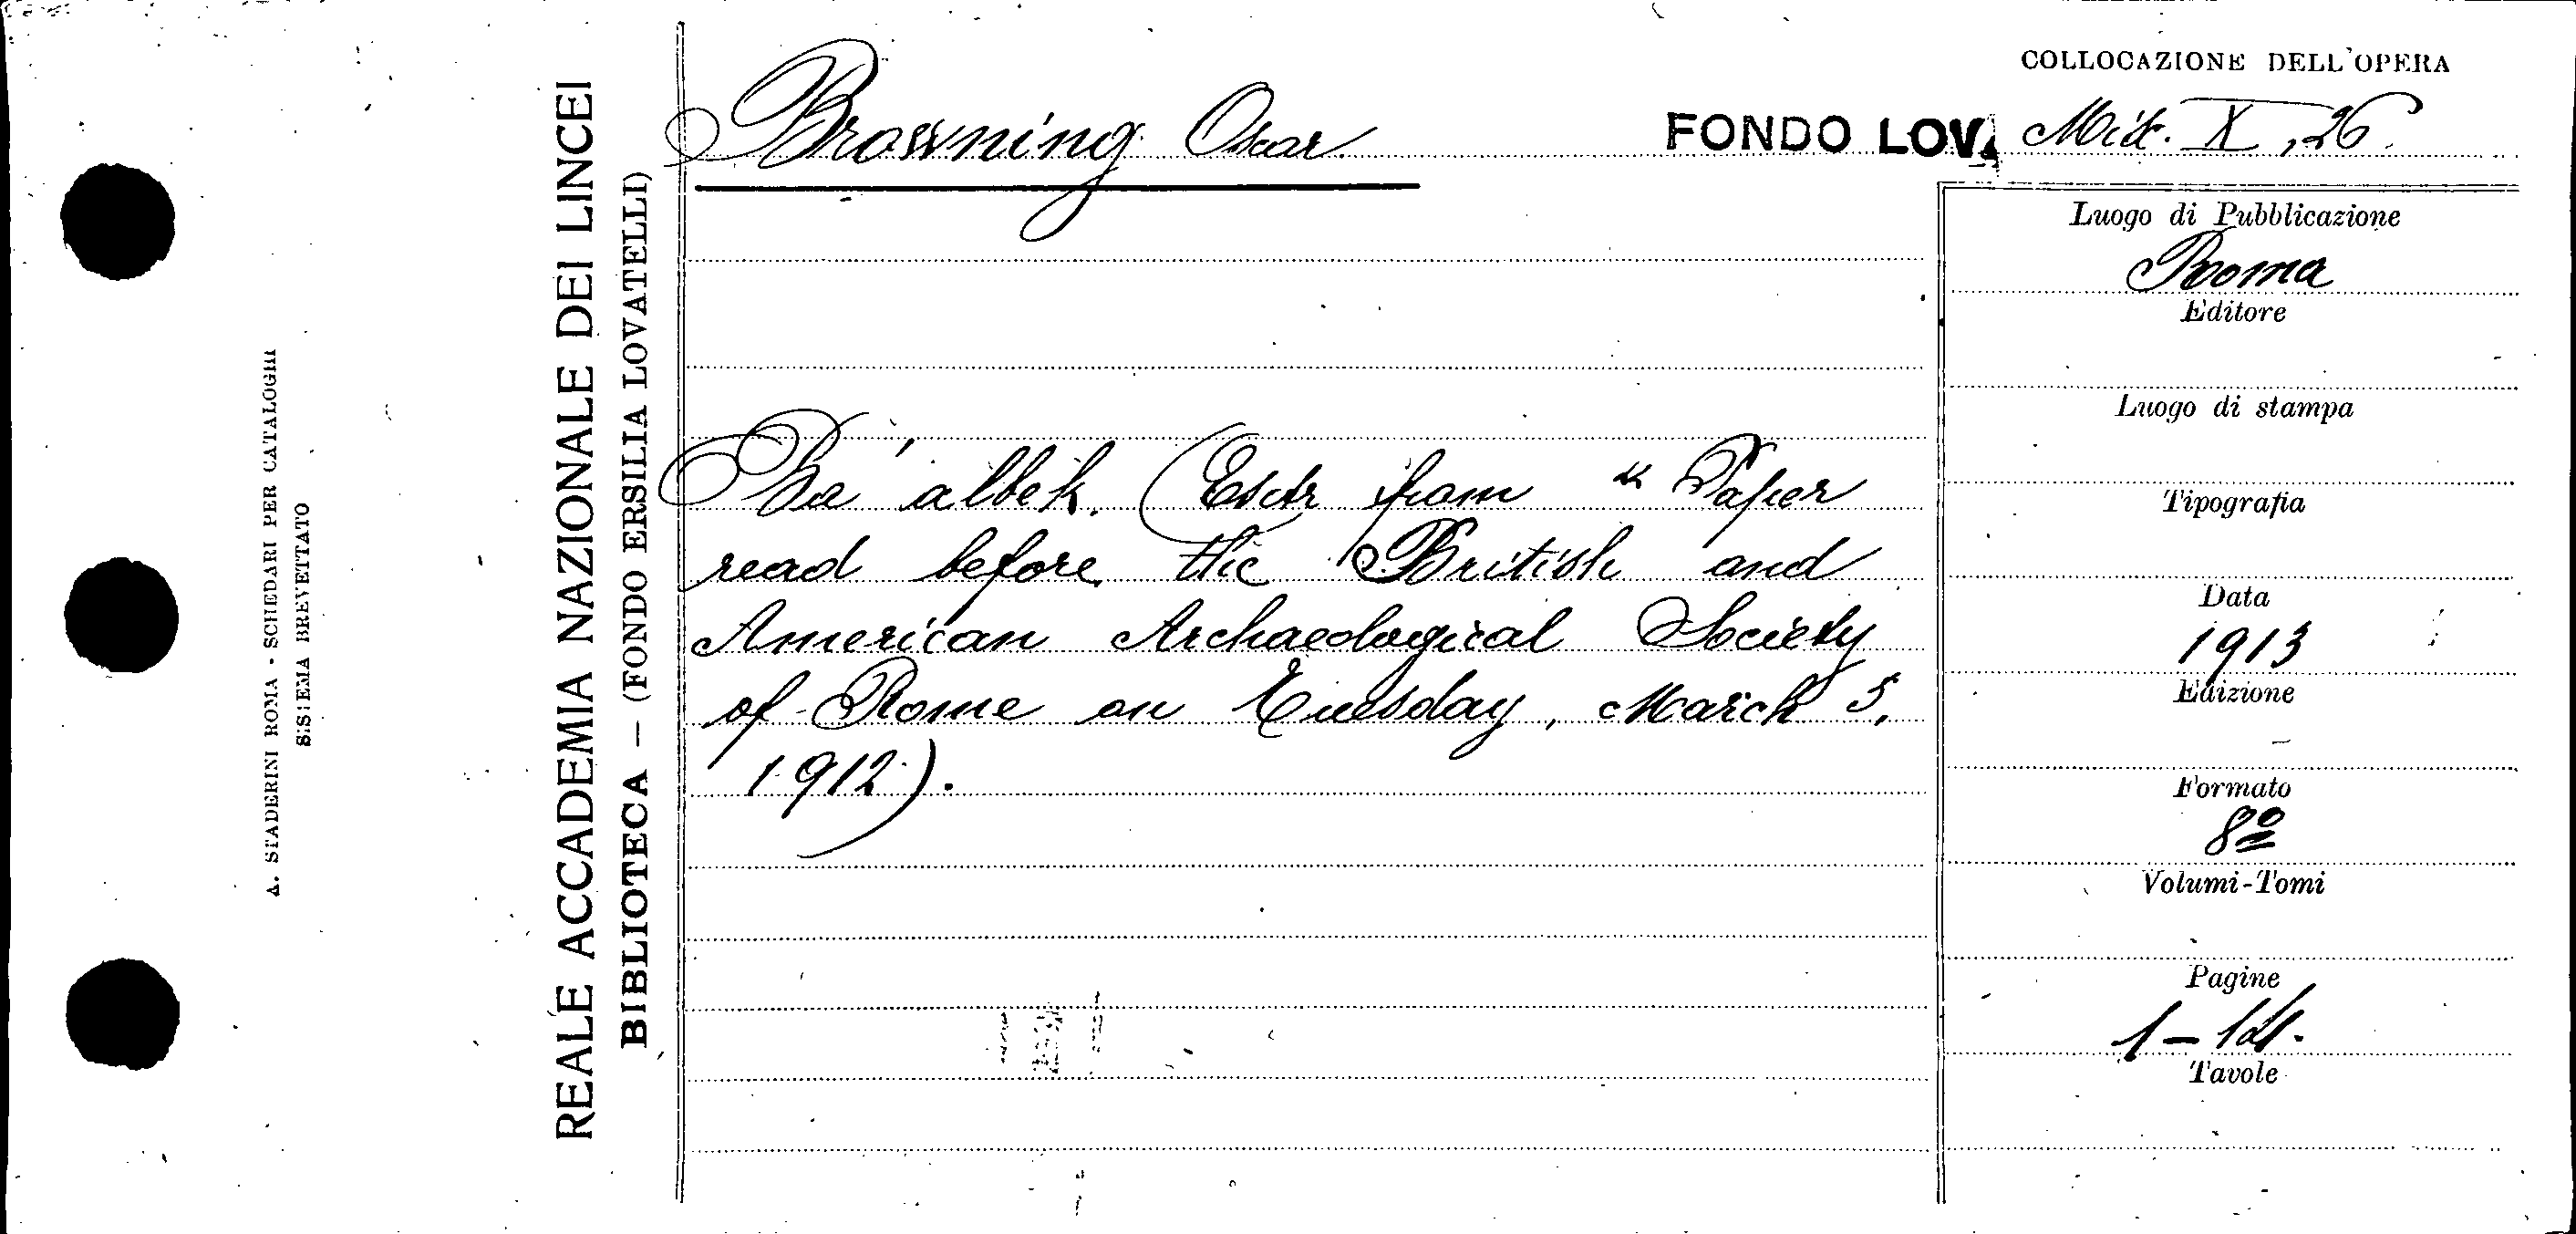 COLLOCAZIONE DELL'OPERA
Browning Oscar.
FONDO LOV. Mix. X, 26.
Ba'albek. (Estr from " Paper
read before the British and
American Archaeological Society
of Rome on Tuesday, March 5,
1912).
Luogo di Pubblicazione
Roma
Editore
Luogo di stampa
Tipografia
Data
1913
Edizione
Formato
8º
Volumi-Tomi
Pagine
1-14.
Tavole
REALE ACCADEMIA NAZIONALE DEI LINCEI
BIBLIOTECA — (FONDO ERSILIA LOVATELLI)
A. STADERINI ROMA - SCHEDARI PER CATALOGHI
SISTEMA BREVETTATO